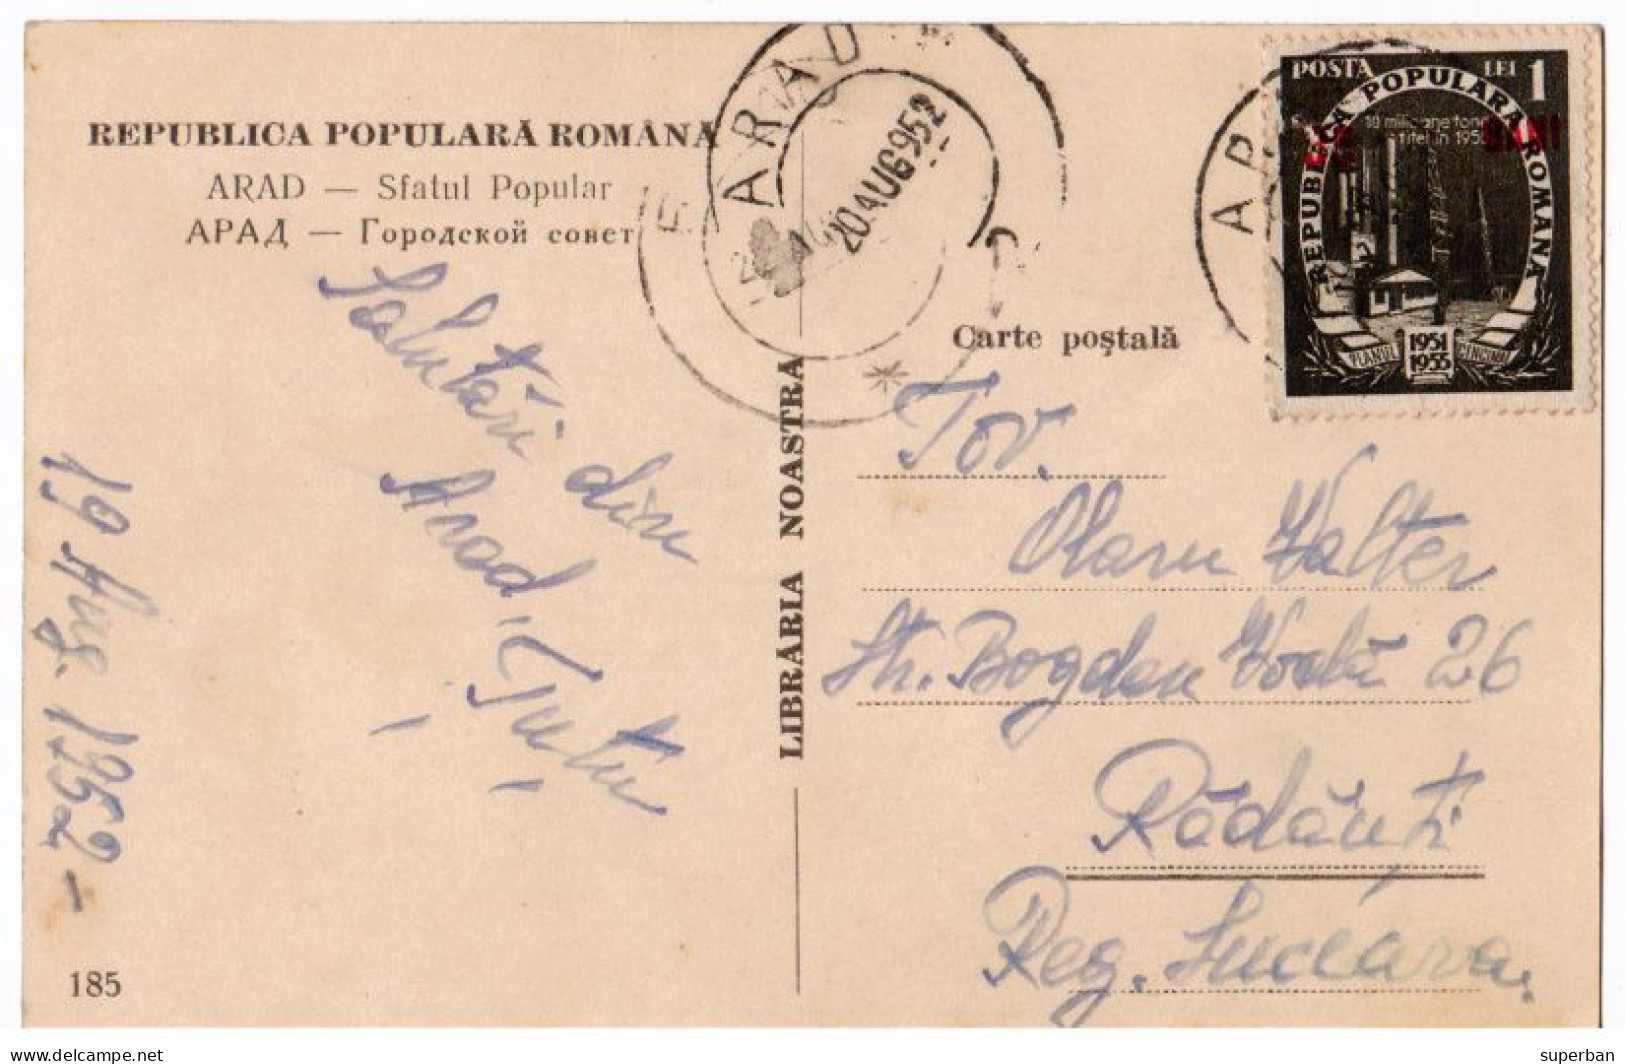 REPUBLICA POPULARĂ ROMÂNĂ
ARAD — Sfatul Popular
АРАД — Городской совет
Salutări din
Arad,
Tutu
19 Aug. 1952 —
185
LIBRĂRIA NOASTRĂ
ARAD
20 AUG 952
ARAD
POSTA LEI 1
REPUBLICA POPULARA ROMANA
10 milioane tone
titei in 1955
BANI
PLANUL CINCINAL
1951
1955
Carte poştală
Tov.
Olaru Walter
Str. Bogdan Vodă 26
Rădăuți
Reg. Suceava.
www.delcampe.net
superban